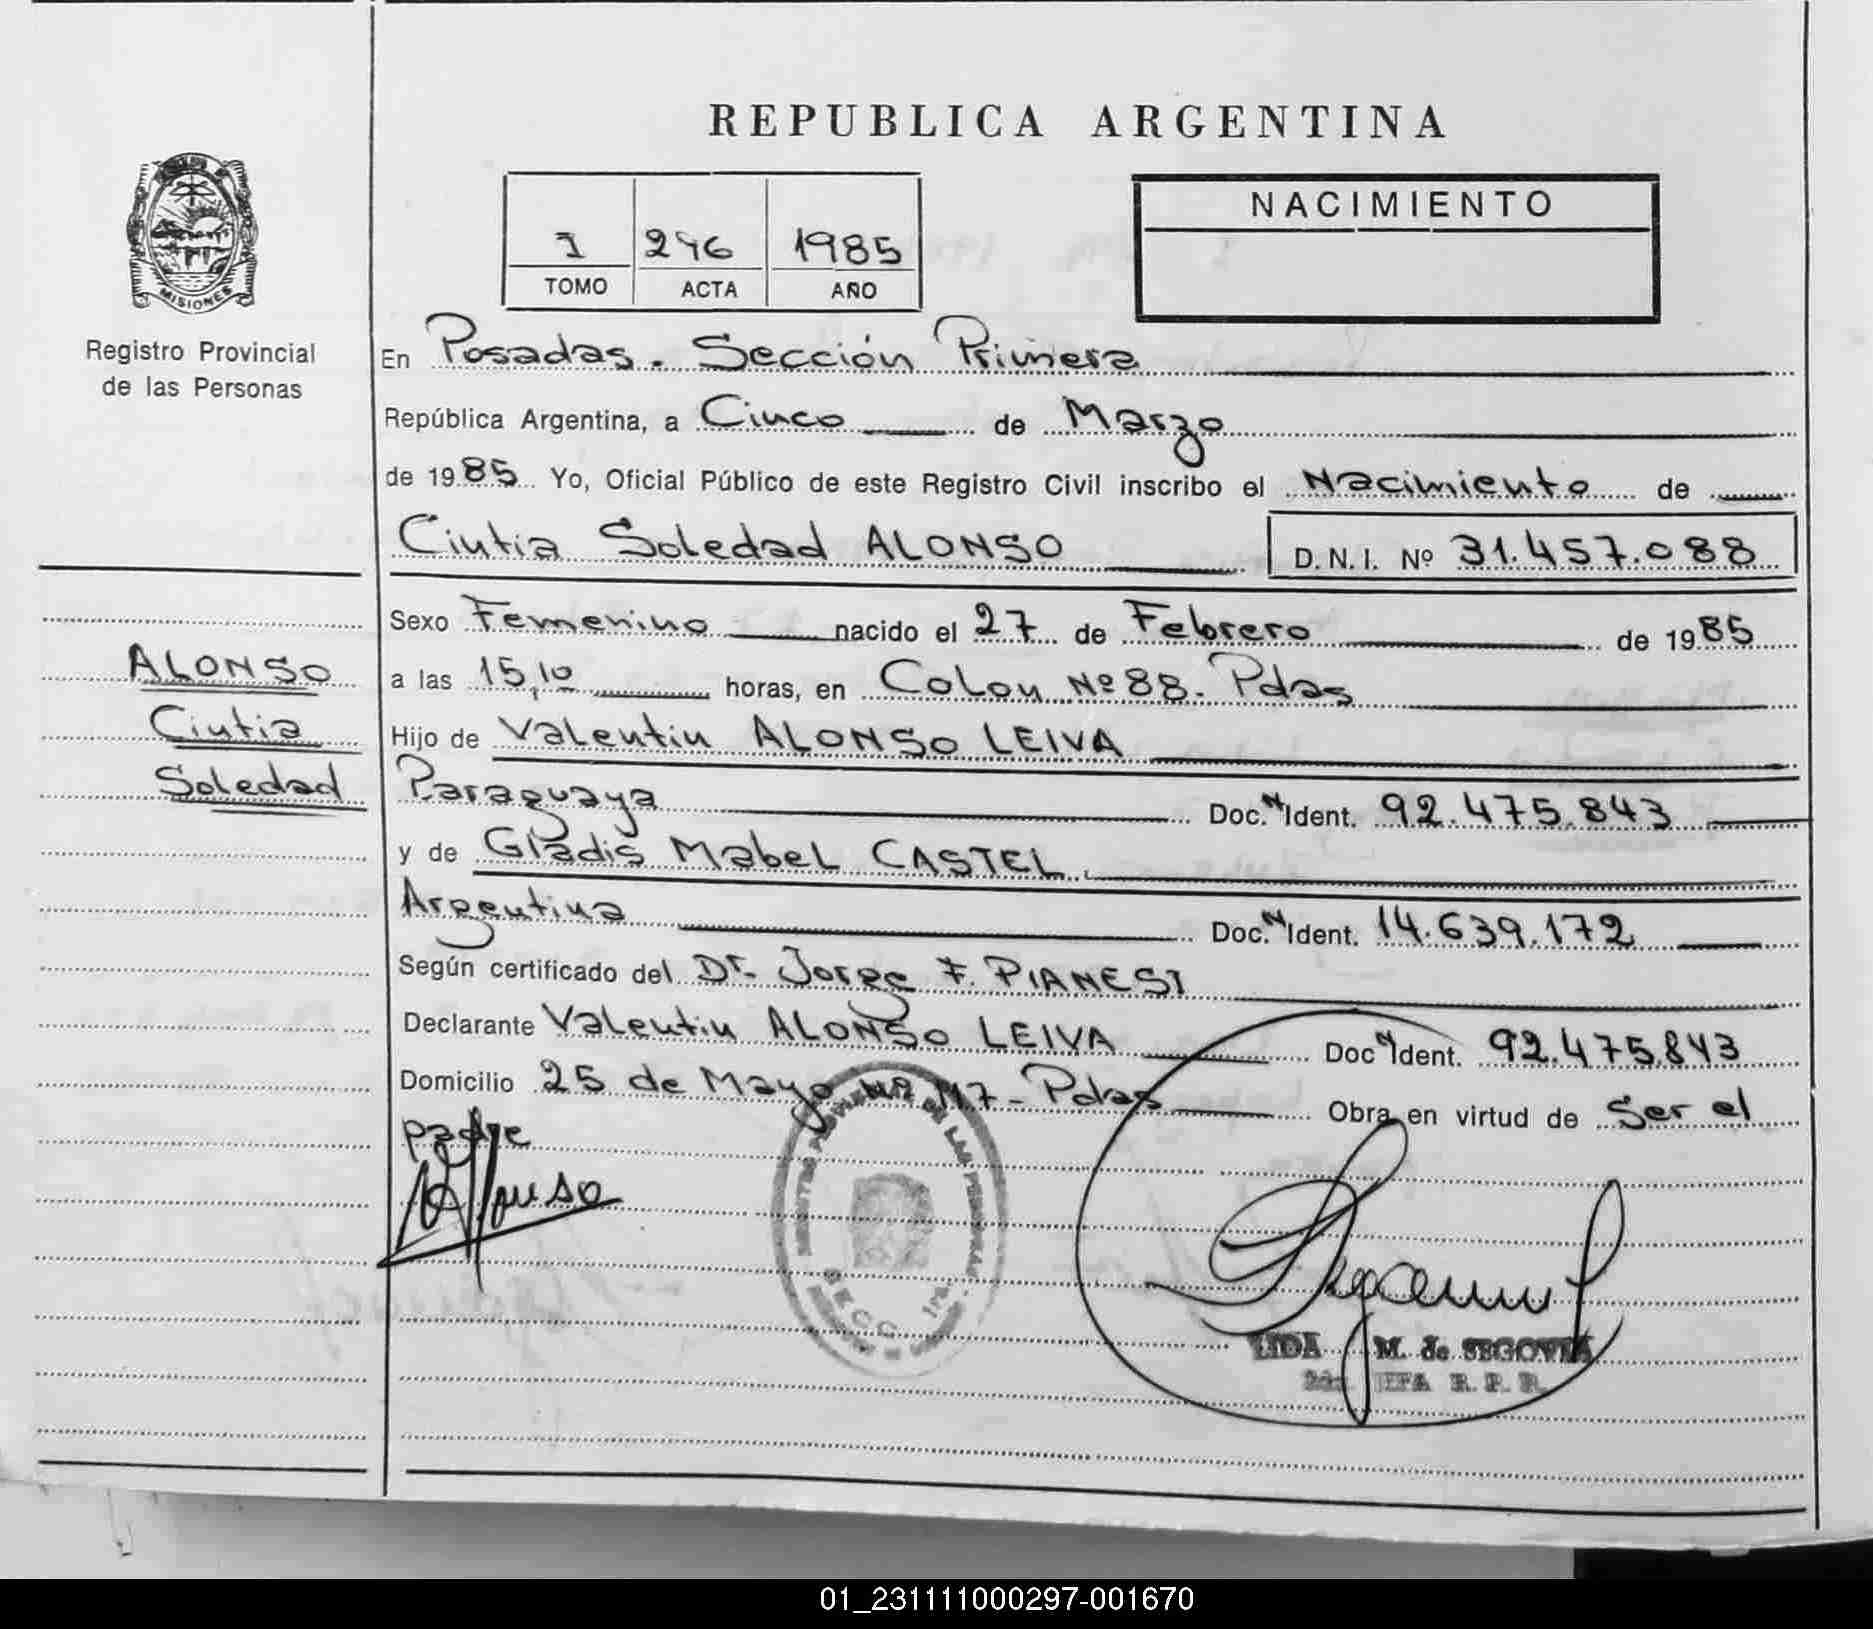 REPUBLICA ARGENTINA
MISIONES
Registro Provincial
de las Personas
I 296 1985
TOMO ACTA AÑO
NACIMIENTO
En Posadas. Sección Primera
República Argentina, a Cinco de Marzo
de 1985 Yo, Oficial Público de este Registro Civil inscribo el Nacimiento de
Cintia Soledad ALONSO D.N.I. Nº 31.457.088
Sexo Femenino nacido el 27 de Febrero de 1985
a las 15,10 horas, en Colon Nº 88. Pdas
Hijo de Valentin ALONSO LEIVA
Paraguaya Doc. N Ident. 92.475.843
y de Gladis Mabel CASTEL.
Argentina Doc. N Ident. 14.639.172
Según certificado del Dr. Jorge F. PIANESI
Declarante Valentin ALONSO LEIVA Doc N Ident. 92.475.843
Domicilio 25 de Mayo Nº 117 - Pdas Obra en virtud de Ser el
padre
ALONSO
Cintia
Soledad
Alonso
DE LAS PERSONAS
SECC. 1ra.
LIDA M. de SEGOVIA
2da. JEFA R. P. P.
01_231111000297-001670